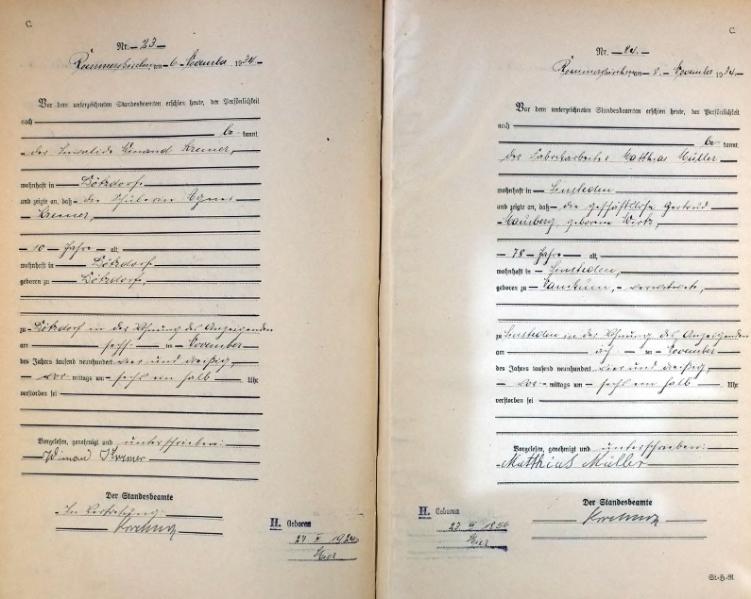 C.
Nr. 23
Rommerskirchen, am 6. November 1934
Vor dem unterzeichneten Standesbeamten erschien heute, der Persönlichkeit
nach
be kannt,
der Invalide Wimand Kremer,
wohnhaft in Bötzdorf
und zeigte an, daß die Schülerin Agnes
Kremer,
10 Jahre alt,
wohnhaft in
geboren zu
zu in der Wohnung des Anzeigenden
am sechs ten November
des Jahres tausend neunhundert vier und dreißig,
vor mittags um sechs ein halb Uhr
verstorben sei
Vorgelesen, genehmigt und unterschrieben:
Wimand Kremer
Der Standesbeamte
In Vertretung:
H. Geboren
1924
Hier
C.
Nr. 24.
Rommerskirchen, am 8. November 1934
Vor dem unterzeichneten Standesbeamten erschien heute, der Persönlichkeit
nach
be kannt,
der Fabrikarbeiter Matthias Müller,
wohnhaft in Sinsteden
und zeigte an, daß die geschäftslose Gertrud
geborene Wirtz,
78 Jahre alt,
wohnhaft in Sinsteden,
geboren zu verwitwete,
zu Sinsteden in der Wohnung des Anzeigenden
am ach ten November
des Jahres tausend neunhundert vier und dreißig,
vor mittags um sechs ein halb Uhr
verstorben sei
Vorgelesen, genehmigt und unterschrieben:
Matthias Müller
Der Standesbeamte
H. Geboren
1856
Hier
St-H-A